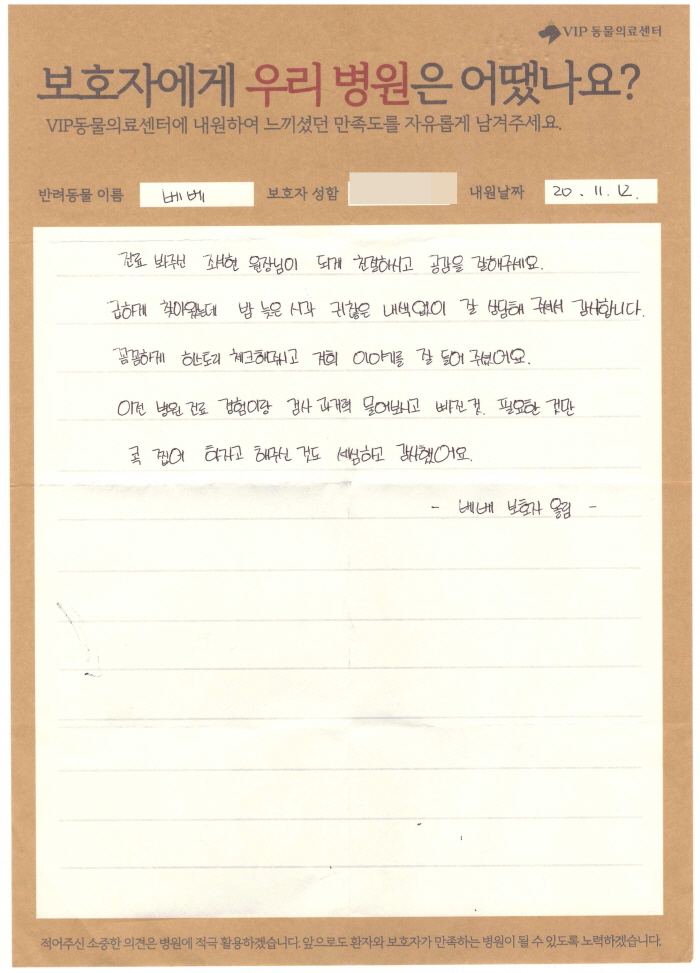 VIP 동물의료센터
보호자에게 우리 병원은 어땠나요?
VIP동물의료센터에 내원하여 느끼셨던 만족도를 자유롭게 남겨주세요.
반려동물 이름 베베 보호자 성함 내원날짜 20. 11. 12.
진료 봐주신 조서현 원장님이 되게 친절하시고 공감을 잘해주세요.
급하게 찾아왔는데 밤 늦은 시각 귀찮은 내색없이 잘 상담해 주셔서 감사합니다.
꼼꼼하게 히스토리 체크해주시고 저희 이야기를 잘 들어 주셨어요.
이전 병원 진료 경험이랑 검사 과거력 물어보시고 빠진 것, 필요한 것만
콕 찝어 하자고 해주신 것도 세심하고 감사했어요.
- 베베 보호자 올림 -
적어주신 소중한 의견은 병원에 적극 활용하겠습니다. 앞으로도 환자와 보호자가 만족하는 병원이 될 수 있도록 노력하겠습니다.